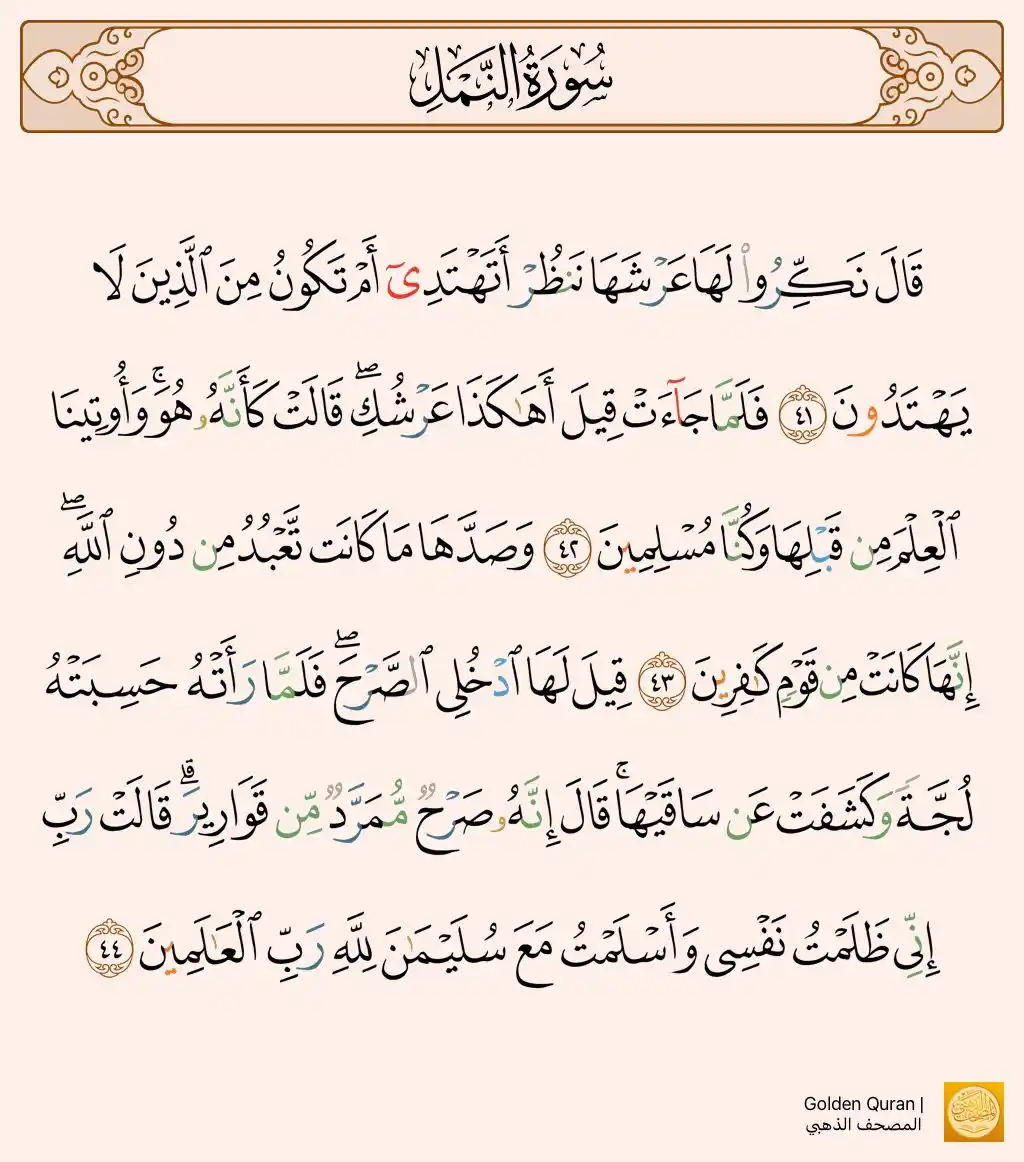 سُورَةُ النَّمۡلِ
قَالَ نَكِّرُواْ لَهَا عَرۡشَهَا نَنظُرۡ أَتَهۡتَدِيٓ أَمۡ تَكُونُ مِنَ ٱلَّذِينَ لَا
يَهۡتَدُونَ ٤١ فَلَمَّا جَآءَتۡ قِيلَ أَهَٰكَذَا عَرۡشُكِۖ قَالَتۡ كَأَنَّهُۥ هُوَۚ وَأُوتِينَا
ٱلۡعِلۡمَ مِن قَبۡلِهَا وَكُنَّا مُسۡلِمِينَ ٤٢ وَصَدَّهَا مَا كَانَت تَّعۡبُدُ مِن دُونِ ٱللَّهِۖ
إِنَّهَا كَانَتۡ مِن قَوۡمٖ كَٰفِرِينَ ٤٣ قِيلَ لَهَا ٱدۡخُلِي ٱلصَّرۡحَۖ فَلَمَّا رَأَتۡهُ حَسِبَتۡهُ
لُجَّةٗ وَكَشَفَتۡ عَن سَاقَيۡهَاۚ قَالَ إِنَّهُۥ صَرۡحٞ مُّمَرَّدٞ مِّن قَوَارِيرَۗ قَالَتۡ رَبِّ
إِنِّي ظَلَمۡتُ نَفۡسِي وَأَسۡلَمۡتُ مَعَ سُلَيۡمَٰنَ لِلَّهِ رَبِّ ٱلۡعَٰلَمِينَ ٤٤
Golden Quran |
المصحف الذهبي